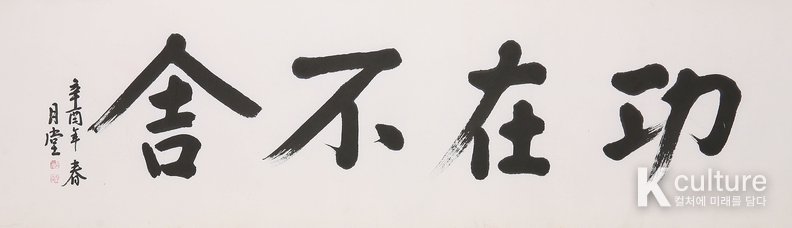 功在不舍
辛酉年 春
月堂
K culture
컬처에 미래를 담다